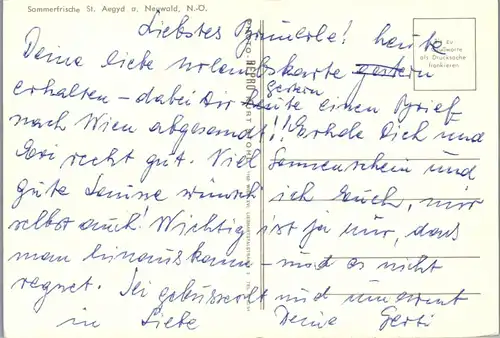 Sommerfrische St. Aegyd a. Neuwald, N.-Ö.
Liebstes ! heute
Deine liebe Urlaubskarte gestern
erhalten - dabei Dir heute gestern einen Brief
nach Wien abgesandt!! Erhole Dich und
recht gut. Viel Sonnenschein und
gute Laune wünsch ich Euch, mir
selbst auch! Wichtig ist ja nur, dass
man hinauskann - und es nicht
regnet. Sei gebusserlt und umarmt
in Liebe Deine Gerti
als Drucksache
frankieren